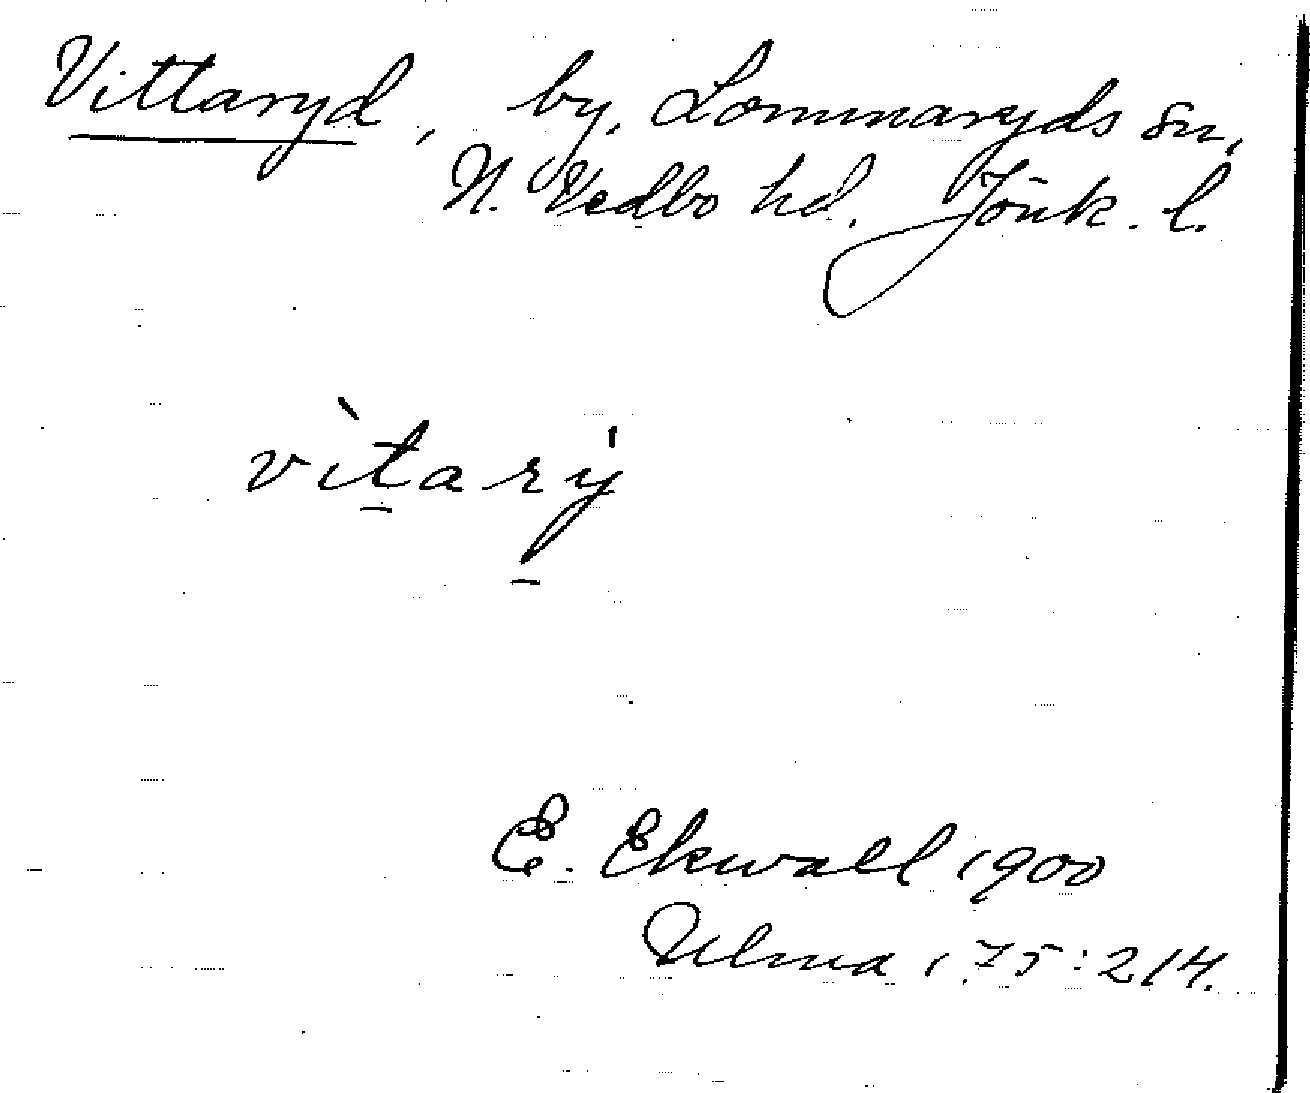 Vittaryd, by, Lommaryds sn,
N. Vedbo hd. Jönk. l.
vìtarẏ
E. Ekwall 1900
Ulma 175:214.